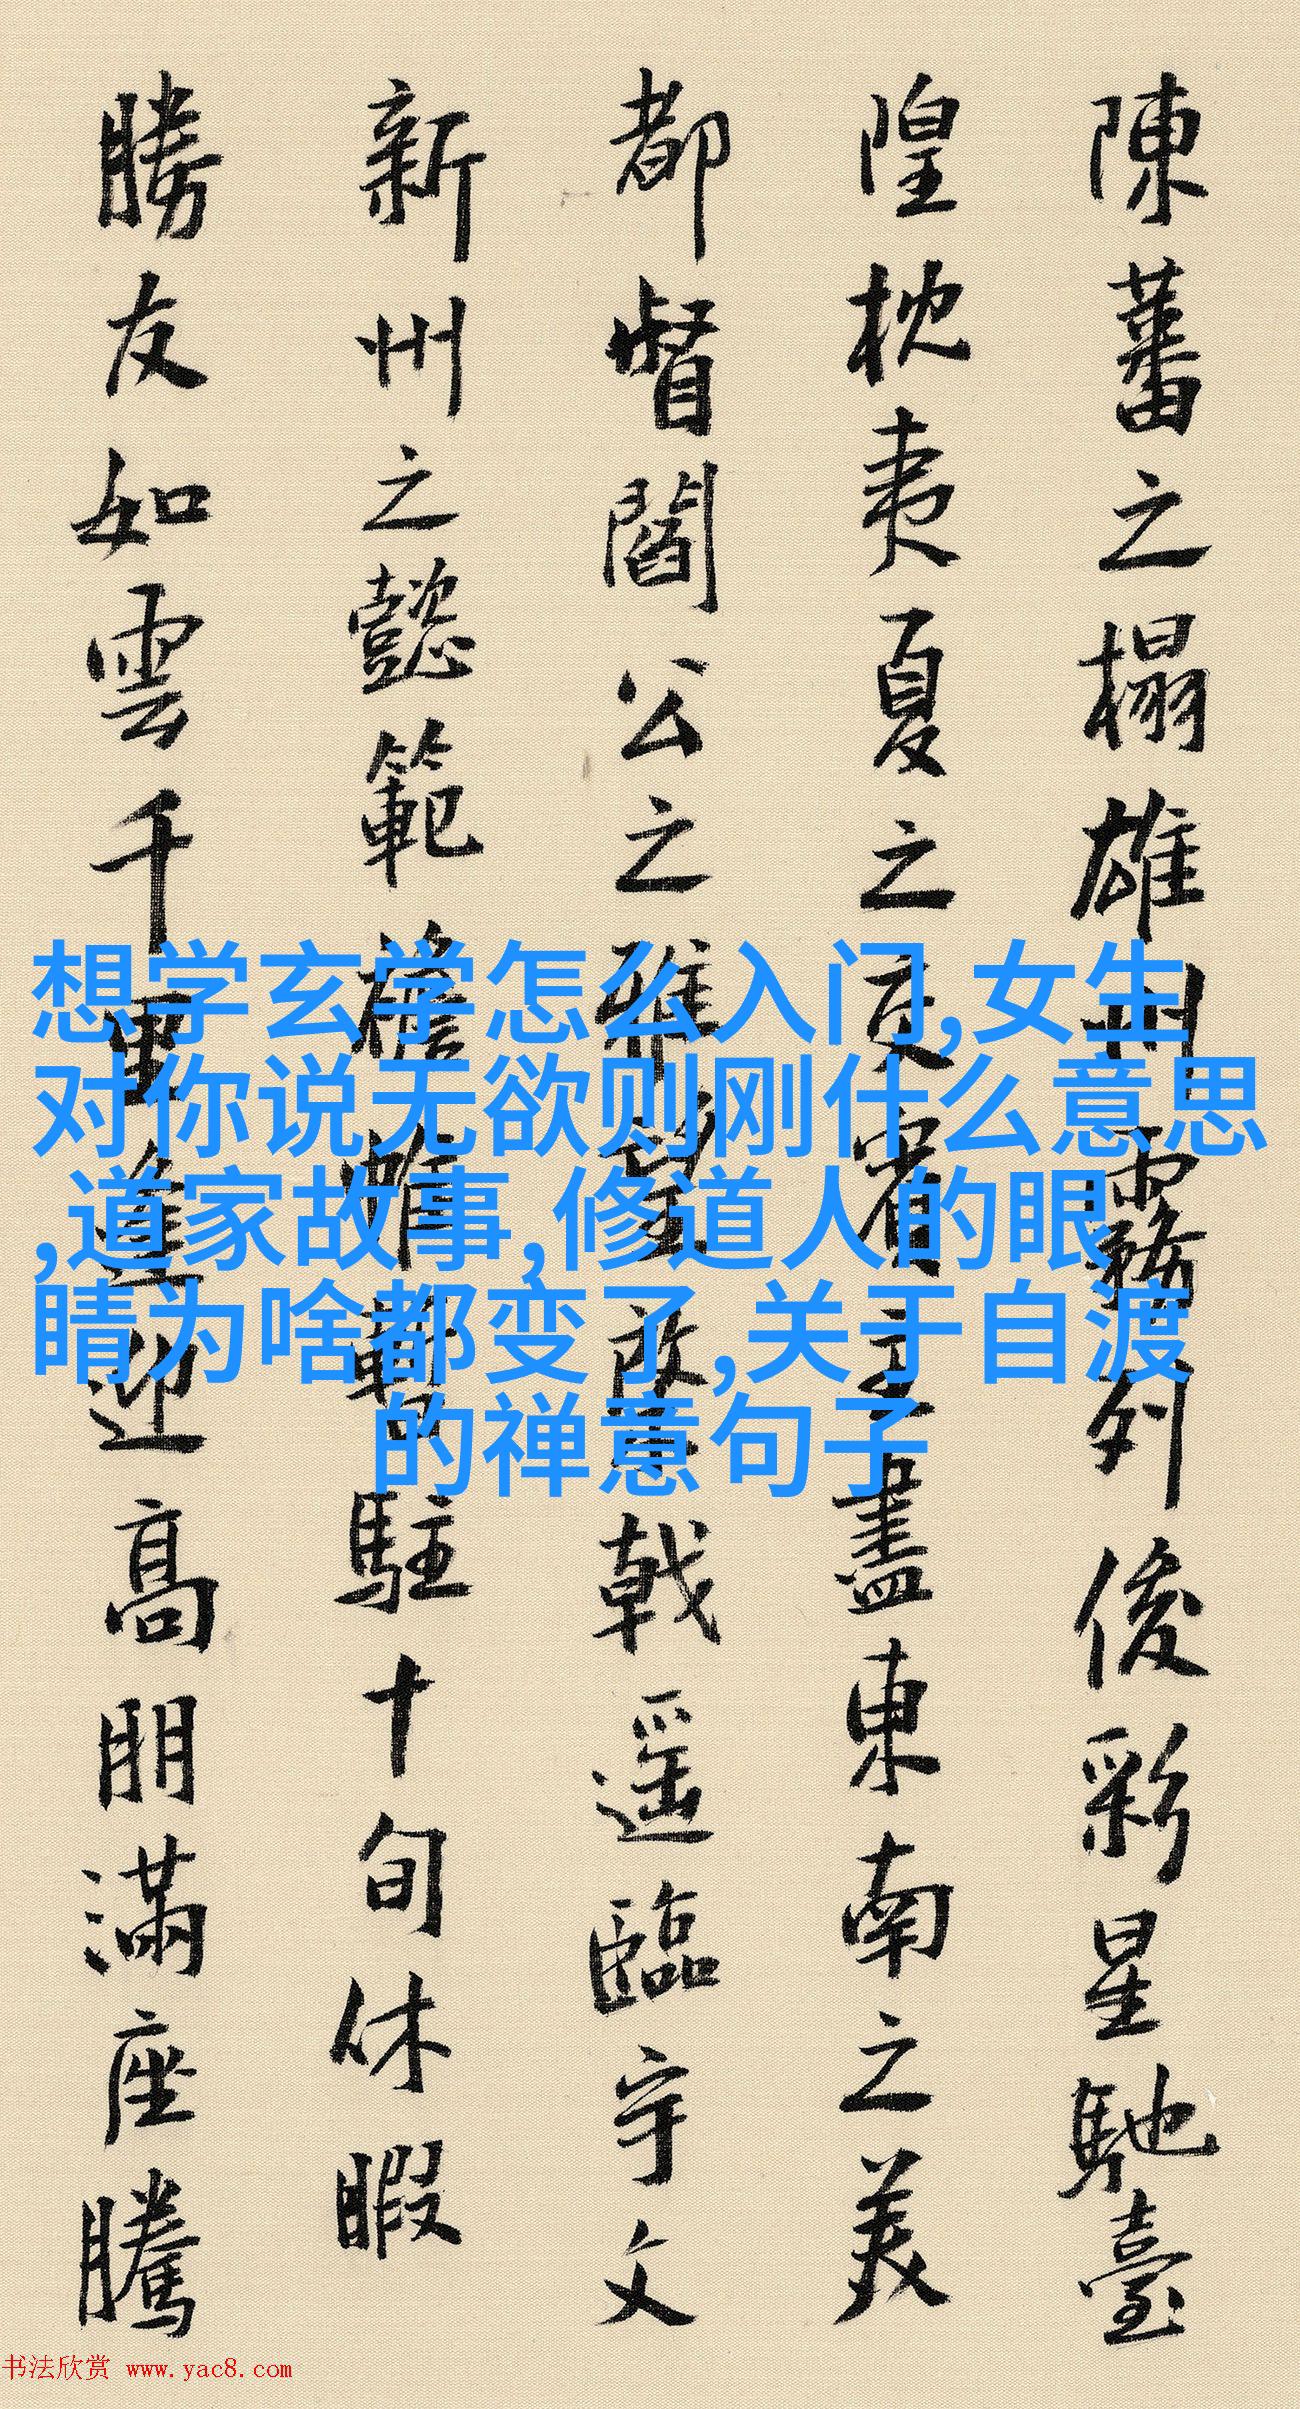 陳蕃之榻雄州霧列俊彩星馳臺
隍枕夷夏之交賓主盡東南之美
都督閻公之雅望棨戟遥臨宇文
新州之懿範襜帷暫駐十旬休暇
勝友如雲千里逢迎高朋滿座騰
想学玄学怎么入门,女生
对你说无欲则刚什么意思
,道家故事,修道人的眼
睛为啥都变了,关于自渡
的禅意句子
书法欣赏 www.yac8.com